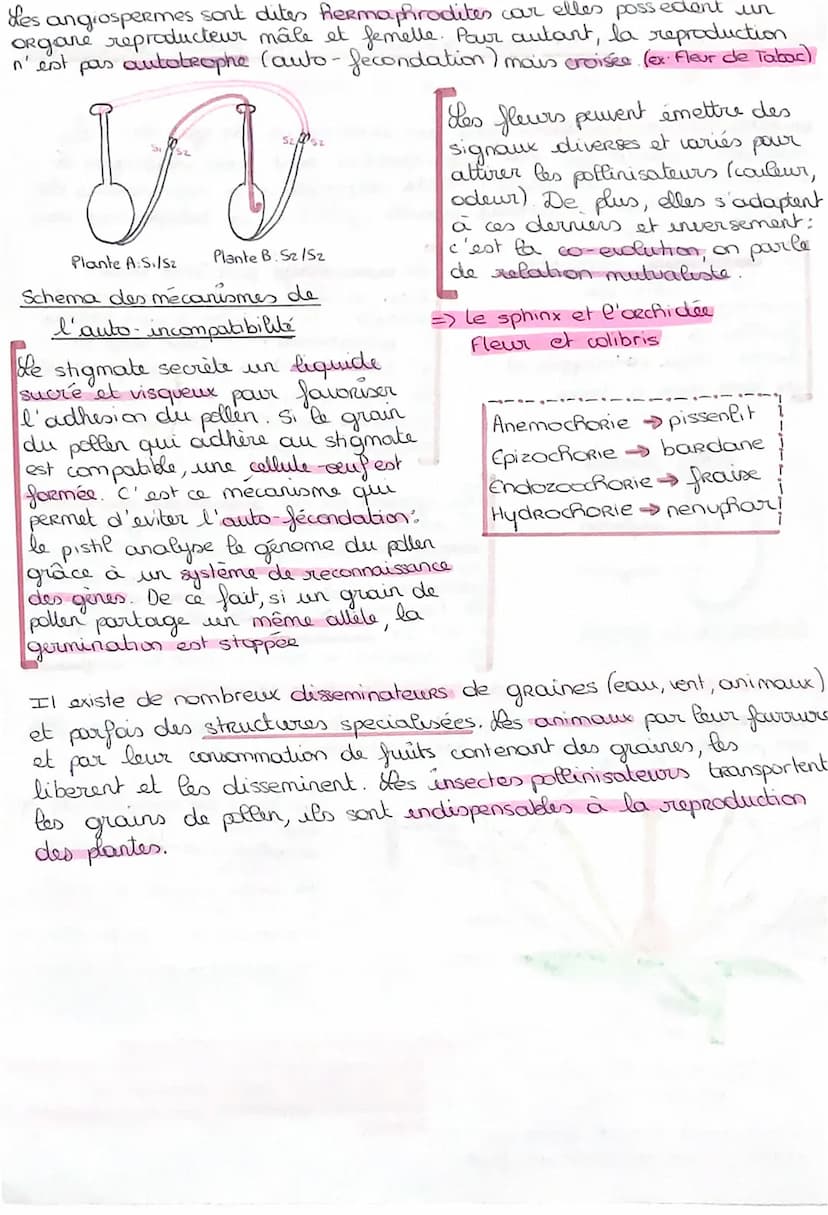 Les angiospermes sont dites hermaphrodites car elles possèdent un
organe reproducteur mâle et femelle. Pour autant, la reproduction
n'est pas autotrophe (auto-fecondation) mais croisée (ex: Fleur de Tabac)
S1 S2
S2 S2
Plante A.S1/S2
Plante B.S2/S2
Schema des mécanismes de
l'auto-incompatibilité
Le stigmate secrète un liquide
sucré et visqueux pour favoriser
l'adhesion du pollen. Si le grain
du pollen qui adhère au stigmate
est compatible, une cellule-oeuf est
formée. C'est ce mécanisme qui
permet d'eviter l'auto-fécondation:
le pistil analyse le génome du pollen
grâce à un système de reconnaissance
des gènes. De ce fait, si un grain de
pollen partage un même allèle, la
germination est stoppée
Les fleurs peuvent émettre des
signaux diverses et variés pour
attirer les pollinisateurs (couleur,
odeur). De plus, elles s'adaptent
à ces derniers et inversement:
c'est la co-evolution, on parle
de relation mutualiste.
=> Le sphinx et l'orchidée
Fleur et colibris
Anemochorie → pissenlit
Epizochorie → bardane
Endozoochorie → fraise
Hydrochorie → nenuphar
Il existe de nombreux disseminateurs de graines (eau, vent, animaux)
et parfois des structures specialisées. Les animaux par leur fourrure
et par leur consommation de fruits contenant des graines, les
liberent et les disseminent. Les insectes pollinisateurs transportent
les grains de pollen, ils sont indispensables à la reproduction
des plantes.